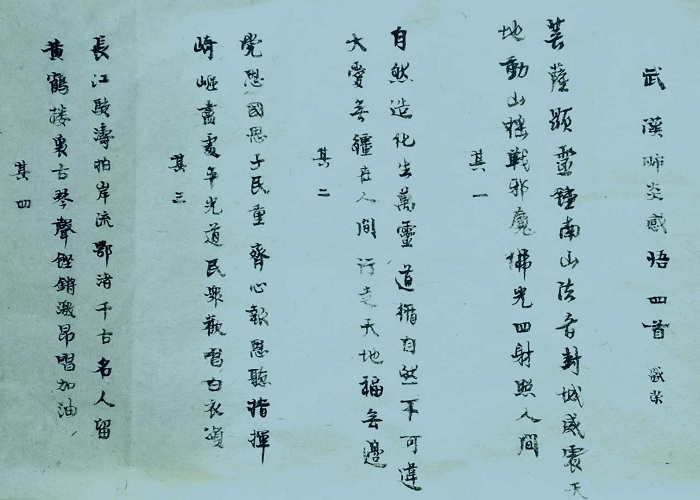 武漢肺炎感悟四首 啟榮
菩薩顯靈鐘南山 法音封城威震天
地動山搖戰邪魔 佛光四射照人間
其一
自然造化生萬靈 道循自然不可違
大愛無疆在人間 行走天地福無邊
其二
黨恩國恩子民重 齊心報恩聽指揮
崎嶇盡處平光道 民衆歡唱白衣頌
其三
長江駭濤拍岸流 鄂渚千古名人留
黃鶴楼裏古琴聲 鏗鏘激昂唱加油
其四